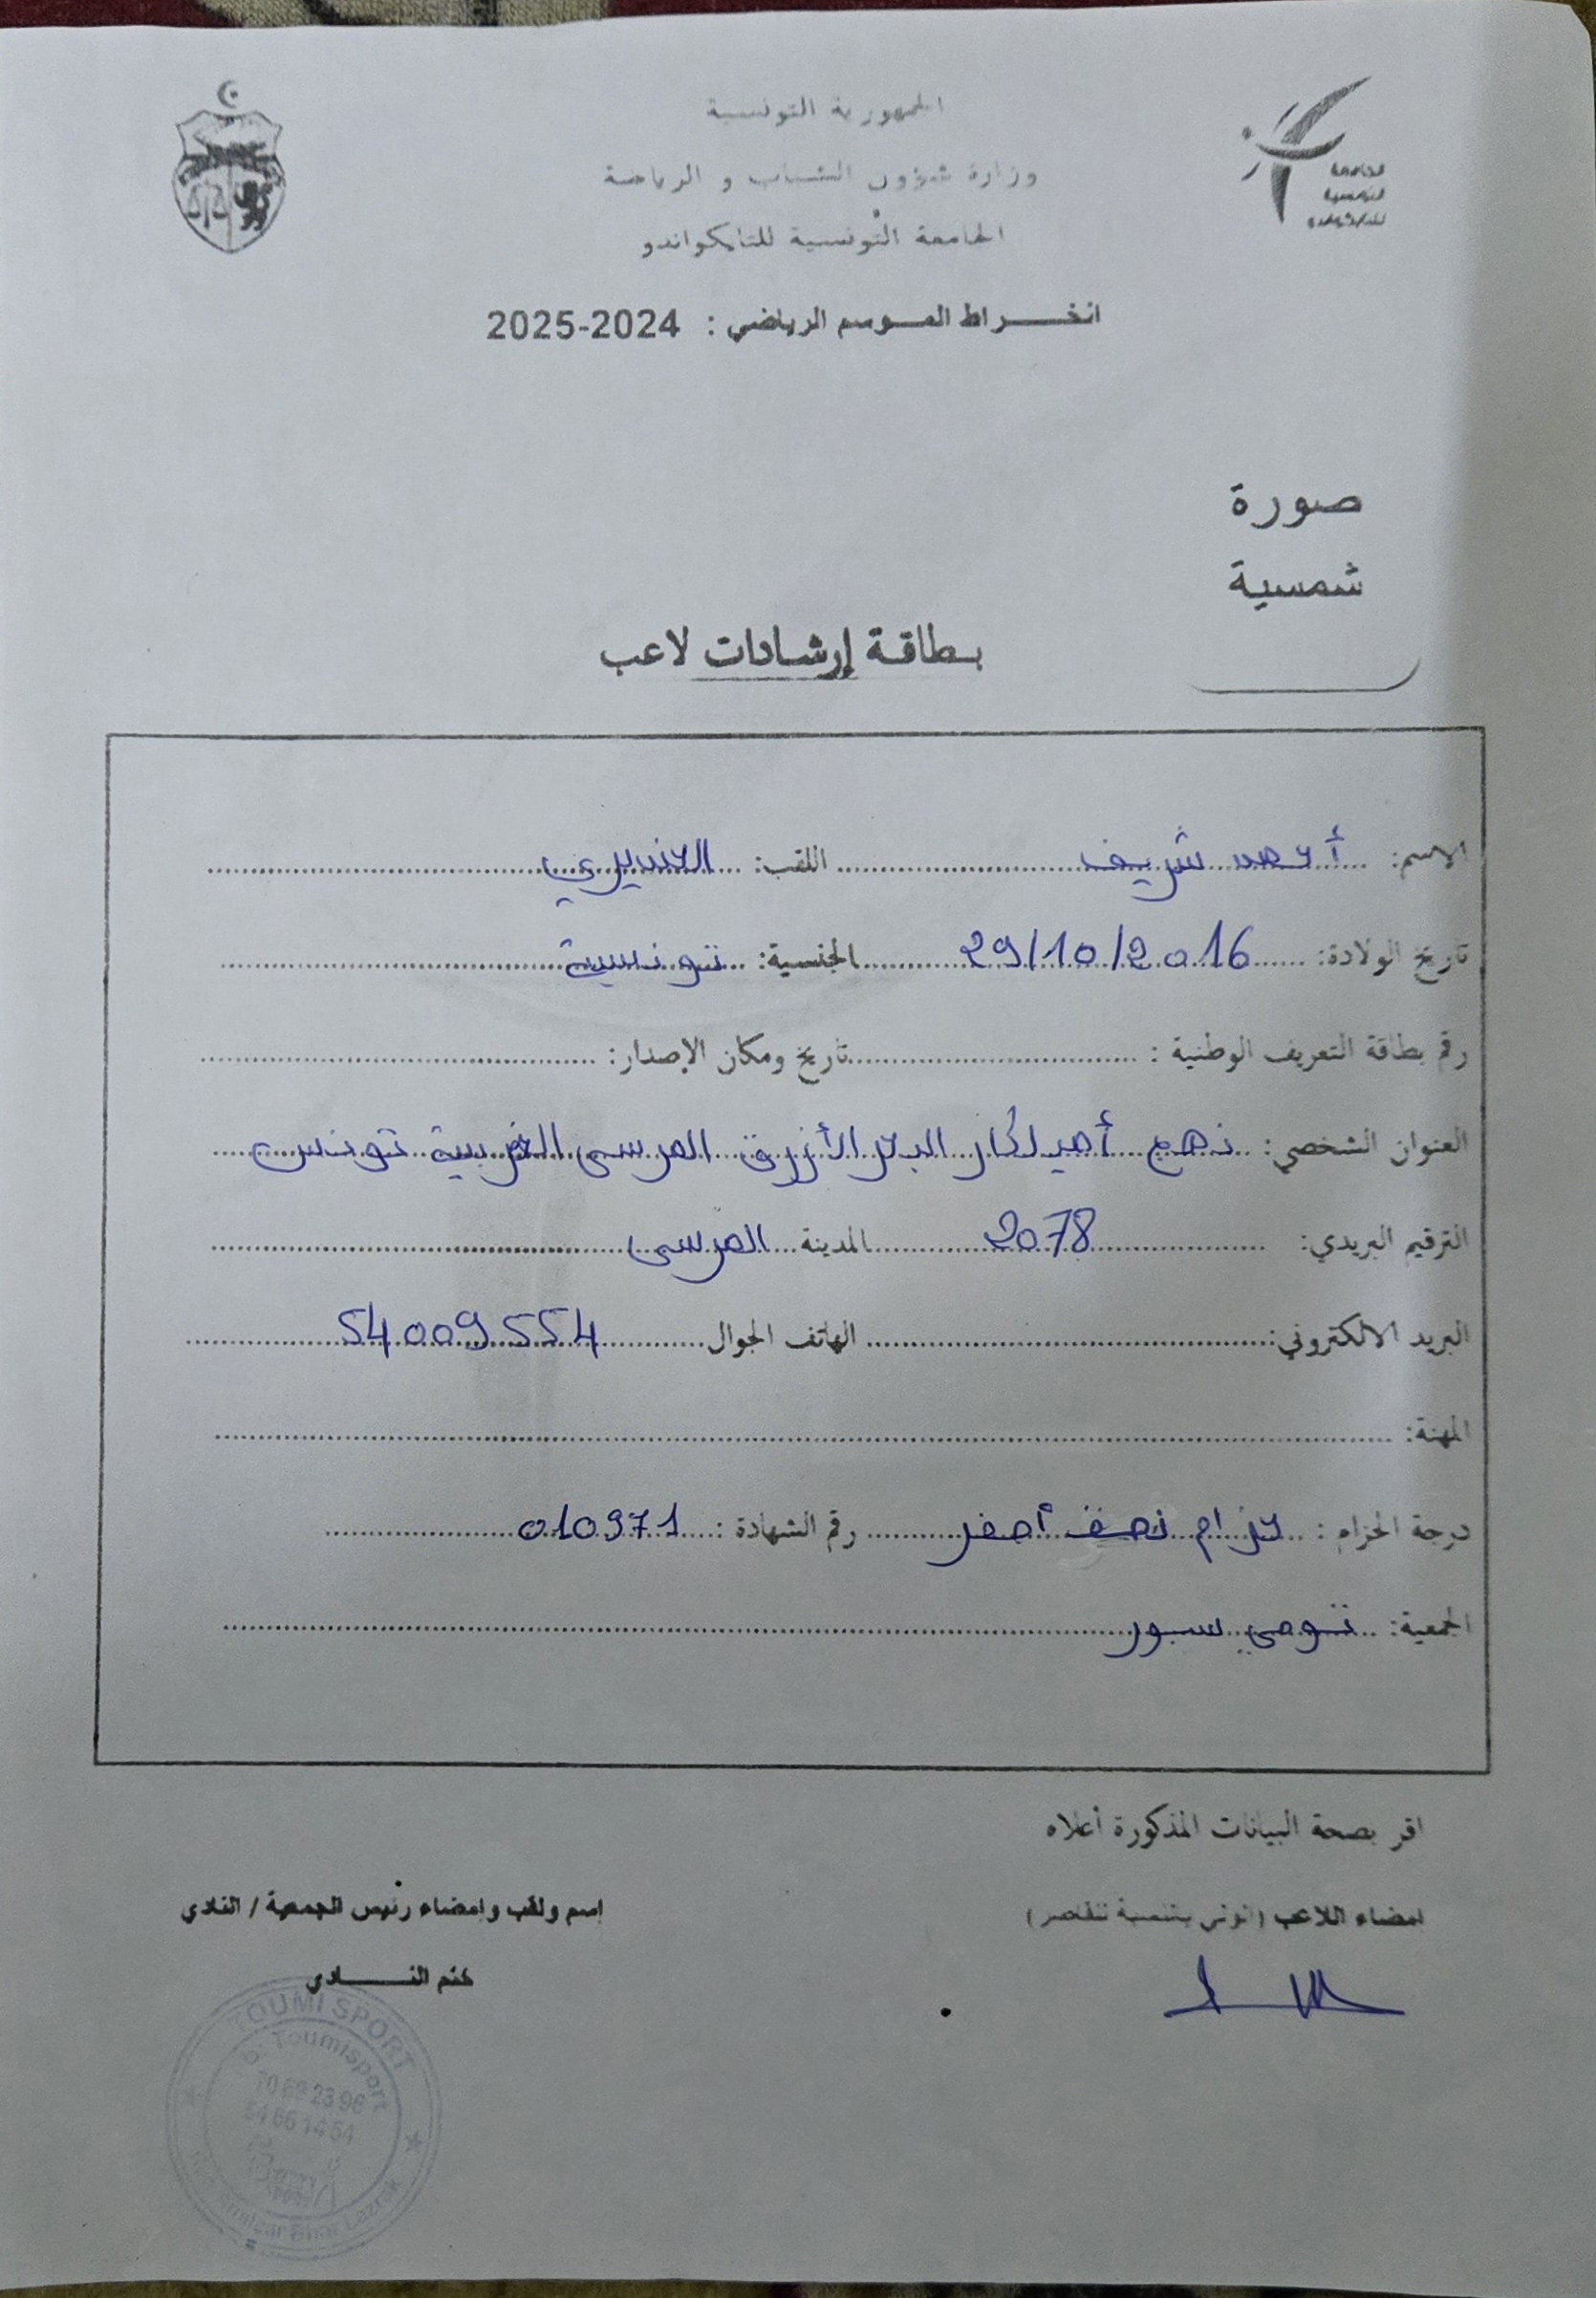 الجمهورية التونسية
وزارة شؤون الشباب و الرياضة
الجامعة التونسية للتايكواندو
الجامعة
التونسية
للتايكواندو
انخراط الموسم الرياضي : 2024-2025
صورة
شمسية
بطاقة إرشادات لاعب
الاسم: أحمد شريف اللقب:
تاريخ الولادة: 29/10/2016 الجنسية: تونسية
رقم بطاقة التعريف الوطنية : تاريخ ومكان الإصدار:
العنوان الشخصي: نهج أميلكار البحر الأزرق المرسى الغربية تونس
الترقيم البريدي: 2078 المدينة المرسى
البريد الالكتروني: الهاتف الجوال 54009554
المهنة:
درجة الحزام : حزام نصف أصفر رقم الشهادة : 010971
الجمعية: تومي سبور
اقر بصحة البيانات المذكورة أعلاه
امضاء اللاعب (الولي بالنسبة للقاصر)
إسم ولقب وإمضاء رئيس الجمعية / النادي
ختم النادي
TOUMI SPORT
Toumisport